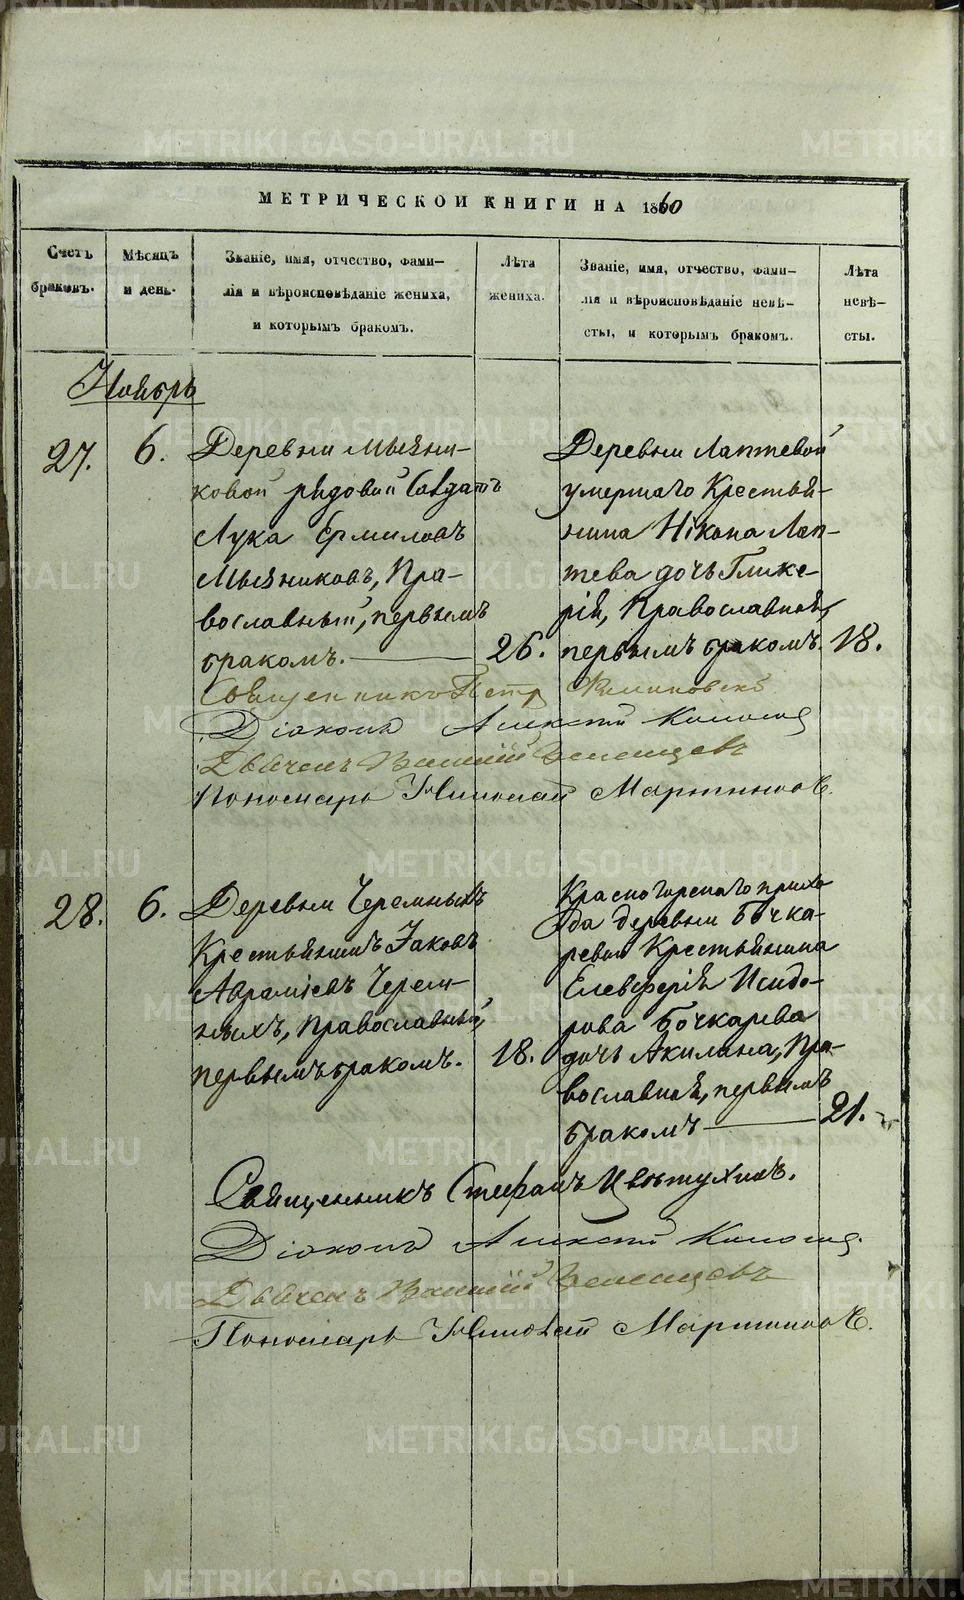 МЕТРИЧЕСКОЙ КНИГИ НА 1860
Счетъ браковъ.
Мѣсяцъ и день.
Званіе, имя, отчество, фами-
лія и вѣроисповѣданіе жениха,
и которымъ бракомъ.
Лѣта жениха.
Званіе, имя, отчество, фами-
лія и вѣроисповѣданіе невѣ-
сты, и которымъ бракомъ.
Лѣта невѣ-
сты.
Ноябрь
27. 6.
Деревни Мызни-
ковой рядовой Солдатъ
Лука Ермиловъ
Мызниковъ, Пра-
вославный, первымъ
бракомъ. 26.
Деревни Лаптевой
умершаго Крестья-
нина Нікона Лап-
тева дочь Глике-
рія, Православная,
первымъ бракомъ. 18.
Священникъ Петр
Діаконъ Алексій
Дьячекъ Василій
Пономарь Николай Мартинов.
28. 6.
Деревни Черемныхъ
Крестьянинъ Іаковъ
Авраміевъ Черем-
ныхъ, Православный,
первымъ бракомъ. 18.
Красногорскаго прихо
да деревни Бочка-
ревой Крестьянина
Елевферія Исидо-
рова Бочкарева
дочь Акилина, Пра-
вославная, первымъ
бракомъ 21.
Священникъ Стефанъ Цвѣтухинъ.
Діаконъ Алексій
Дьячекъ Василій
Пономарь Николай Мартинов.
METRIKI.GASO-URAL.RU